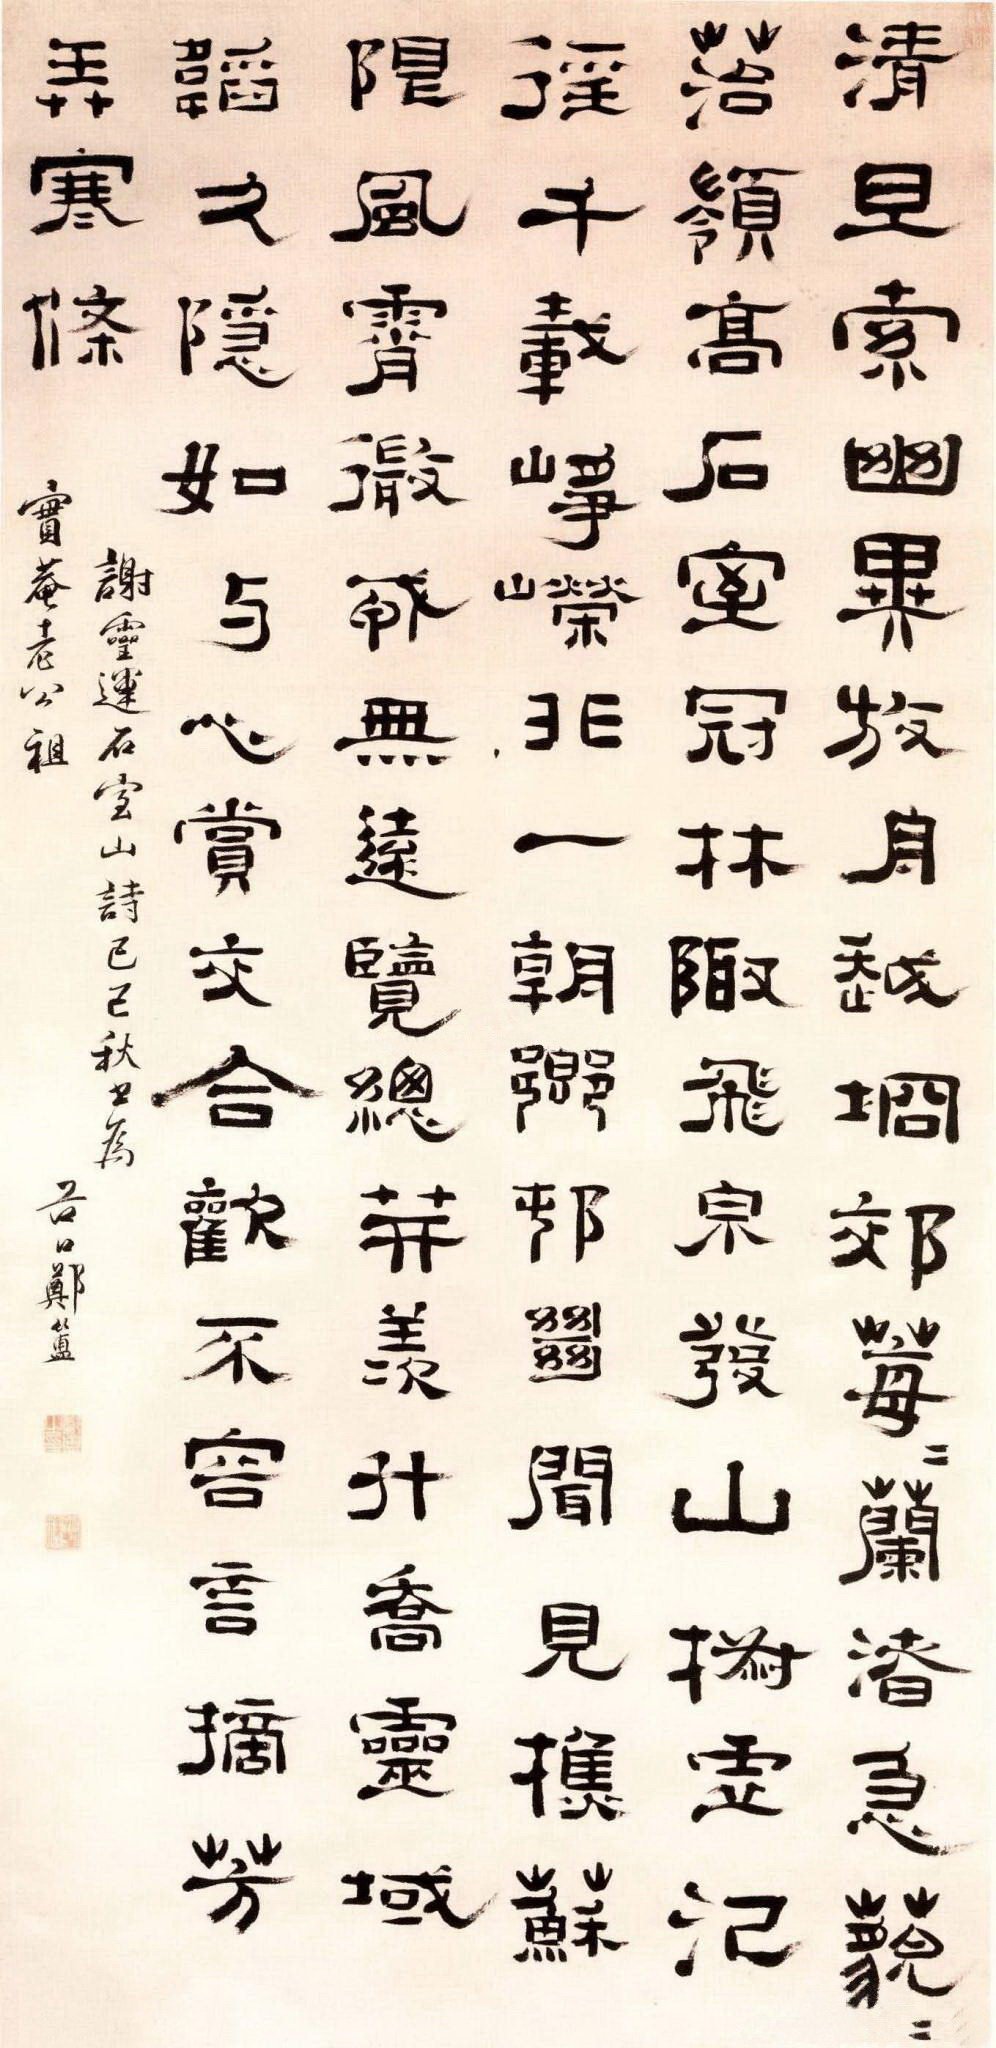 清旦索幽異放舟越坰郊莓〻蘭渚急藐〻
苔嶺高石室冠林陬飛泉發山椒虛汜
徑千載崢嶸非一朝鄉邨㡭聞見樵蘇
限風霄微戎無遠覽總笄羨升喬靈域
韜久隱如与心賞交合歡不容言摘芳
弄寒條
謝靈運石室山詩己巳秋書為
實菴老公祖
谷口鄭簠